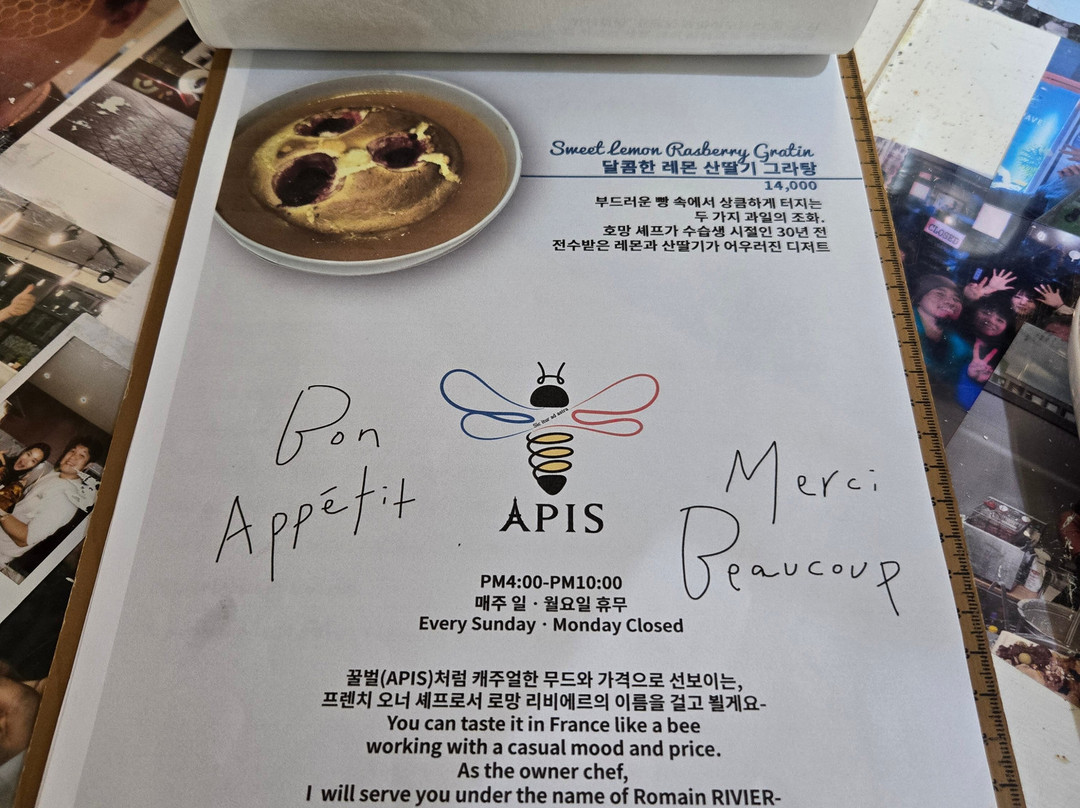 Sweet Lemon Rasberry Gratin
달콤한 레몬 산딸기 그라탕
14,000
부드러운 빵 속에서 상큼하게 터지는
두 가지 과일의 조화.
호망 셰프가 수습생 시절인 30년 전
전수받은 레몬과 산딸기가 어우러진 디저트
Bon
Appétit
Sic itur ad astra
Merci
Beaucoup
APIS
PM4:00-PM10:00
매주 일 · 월요일 휴무
Every Sunday · Monday Closed
꿀벌(APIS)처럼 캐주얼한 무드와 가격으로 선보이는,
프렌치 오너 셰프로서 로망 리비에르의 이름을 걸고 뵐게요-
You can taste it in France like a bee
working with a casual mood and price.
As the owner chef,
I will serve you under the name of Romain RIVIER-
CLOSED